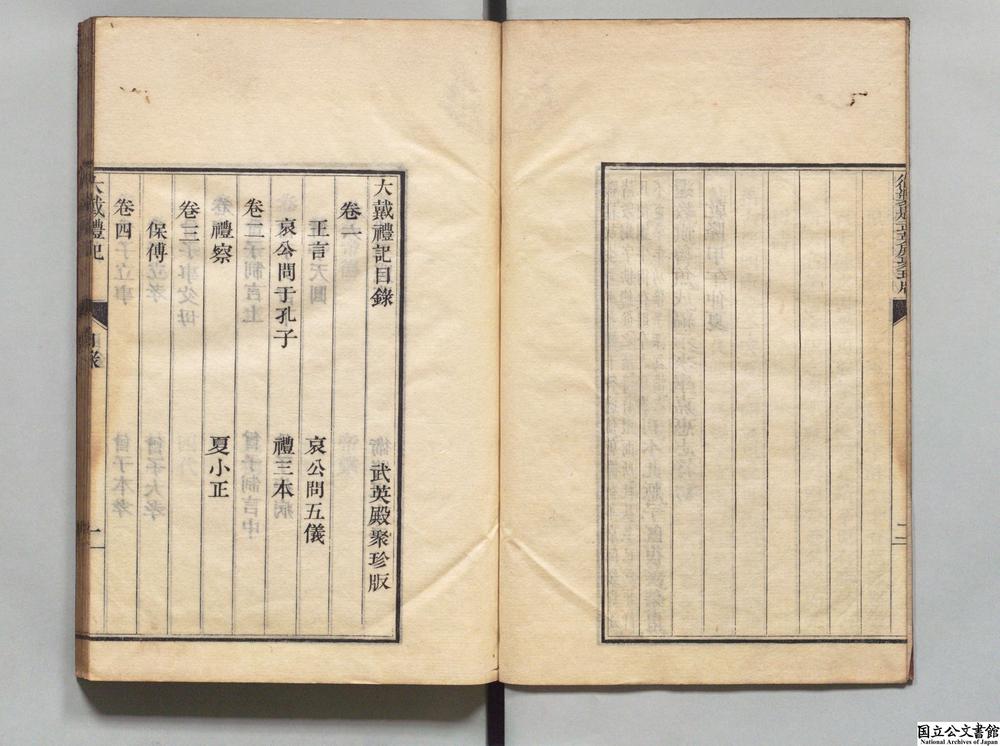 大戴禮記目錄　武英殿聚珍版
卷一
王言　哀公問五儀
哀公問于孔子　禮三本
卷二
禮察　夏小正
卷三
保傅
卷四
大戴禮記　目錄　一
国立公文書館
National Archives of Japan